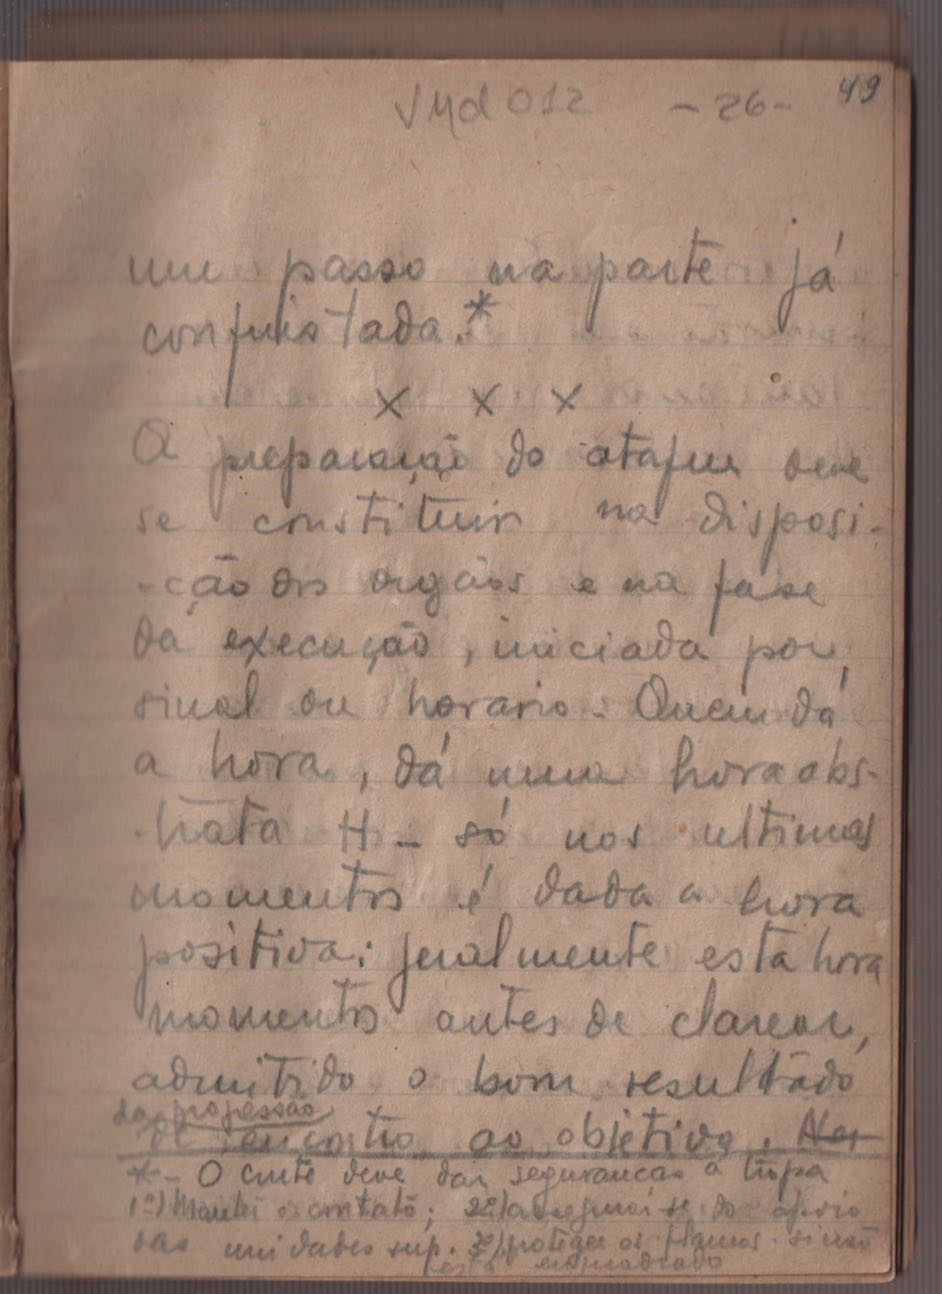 VMd 012 - 26 - 49
um passo na parte já
conquistada.*
x x x
A preparação do ataque deve
se constituir na disposi-
-ção dos orgãos e na fase
da execução, iniciada por
sinal ou horario. Quem dá
a hora, dá uma hora abs-
-trata H - só nos ultimos
momentos é dada a hora
positiva: geralmente esta hora
momentos antes de clarear,
admitido o bom resultado
da progessão
de encontro ao objetivo. Nes
* - O cmte deve dar seguranca a tropa
1º) Manter o contato; 2º) assegurar-se do apoio
das unidades sup. 3º) proteger os flancos. sinão
está enquadrado